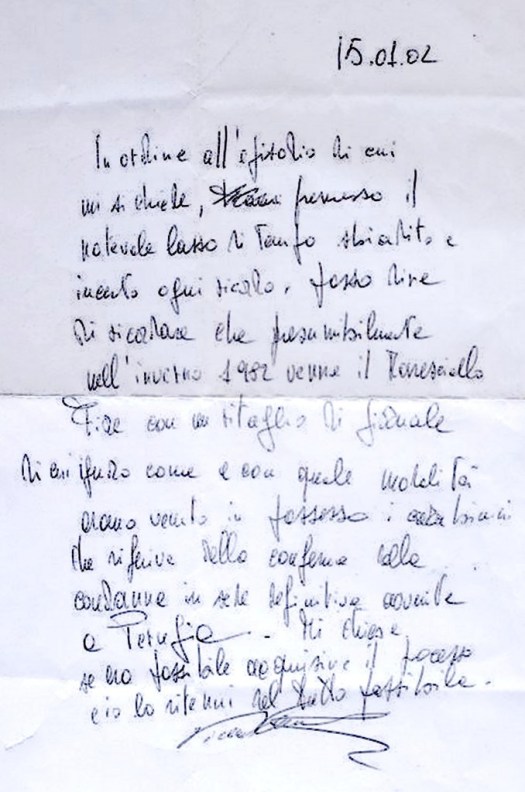 15.01.02
In ordine all'episodio di cui
mi si chiede, premesso il
notevole lasso di tempo sbiadito e
incerto ogni ricordo. posso dire
di ricordare che presumibilmente
nell'inverno 1982 venne il Maresciallo
Fiore con un ritaglio di giornale
di cui ignoro come e con quale modalità
erano venuto in possesso i carabinieri
che riferiva della conferma della
condanna in sede definitiva avvenuta
a Perugia. Mi chiese
se era possibile acquisire il processo
e io lo ritenni del tutto possibile.